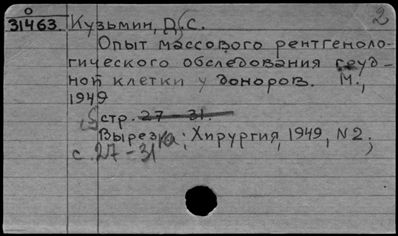 0 2
31463 Кузьмин, Д. С.
Опыт массового рентгеноло-
гического обследования груд-
ной клетки у доноров. М.,
1949
5 стр. 27 - 31.
Вырезка; Хирургия, 1949, N2,
с. 27-31